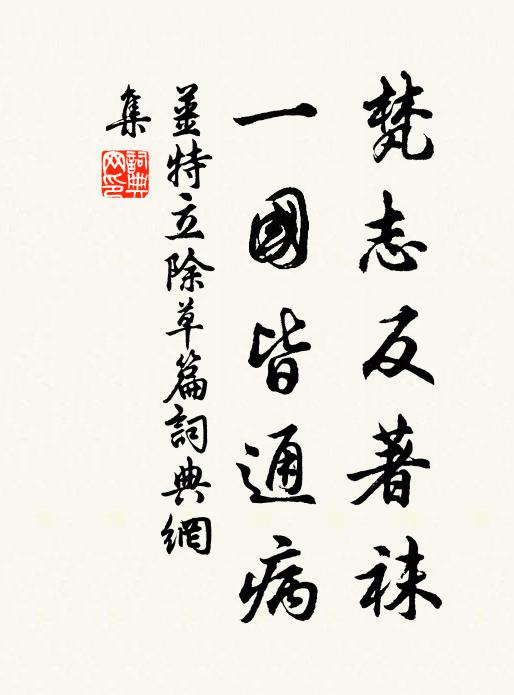 梵志反著袜
一國皆通病
薑特立除草篇詞典網
集
詞典
网印